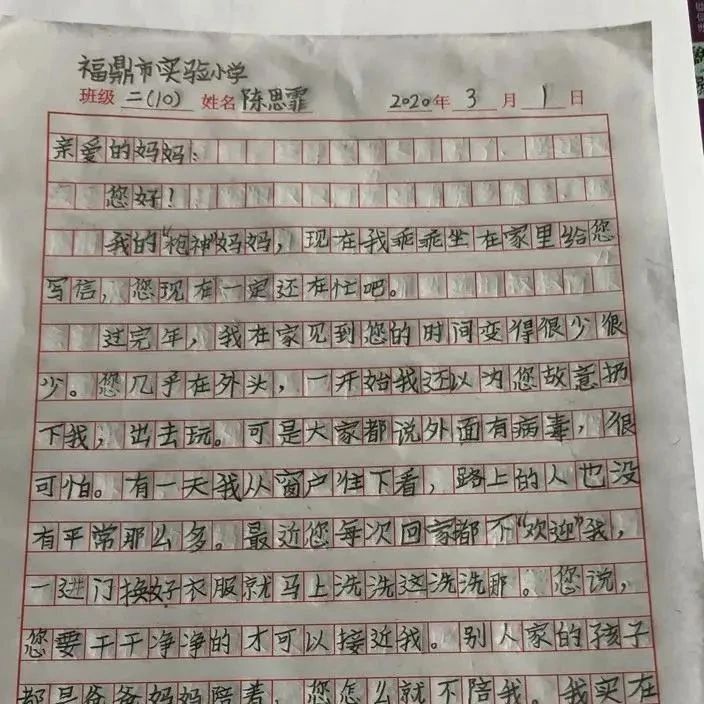 福鼎市实验小学
班级 二(10) 姓名 陈思霏 2020年 3 月 1 日
亲爱的妈妈:
您好!
我的"枪神"妈妈,现在我乖乖坐在家里给您
写信,您现在一定还在忙吧。
过完年,我在家见到您的时间变得很少很
少。您几乎在外头,一开始我还以为您故意扔
下我,出去玩。可是大家都说外面有病毒,很
可怕。有一天我从窗户往下看,路上的人也没
有平常那么多。最近您每次回家都不"欢迎"我,
一进门换好衣服就马上洗洗这洗洗那。您说,
您要干干净净的才可以接近我。别人家的孩子
都是爸爸妈妈陪着,您怎么就不陪我。我实在